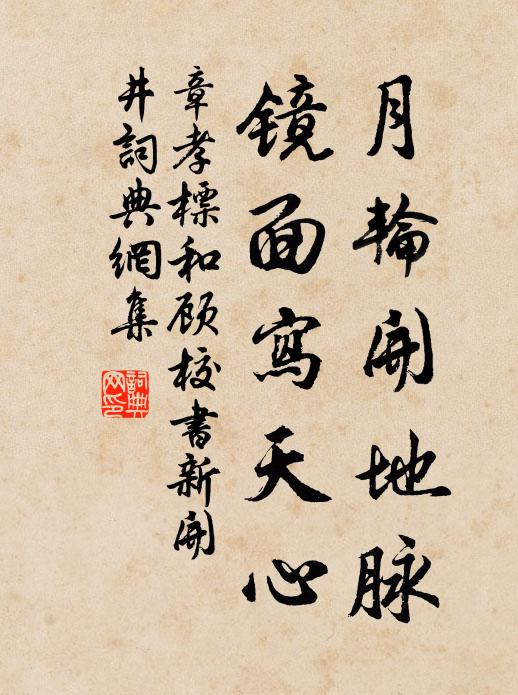 月輪開地脉
镜面寫天心
章孝標和顾校書新開
井詞典網集
詞典
网印